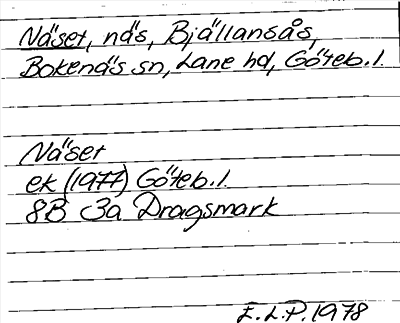 Näset, näs, Bjällansås,
Bokenäs sn, Lane hd, Göteb. l.
Näset
ek (1977) Göteb. l.
8B 3a Dragsmark
E.L.P. 1978